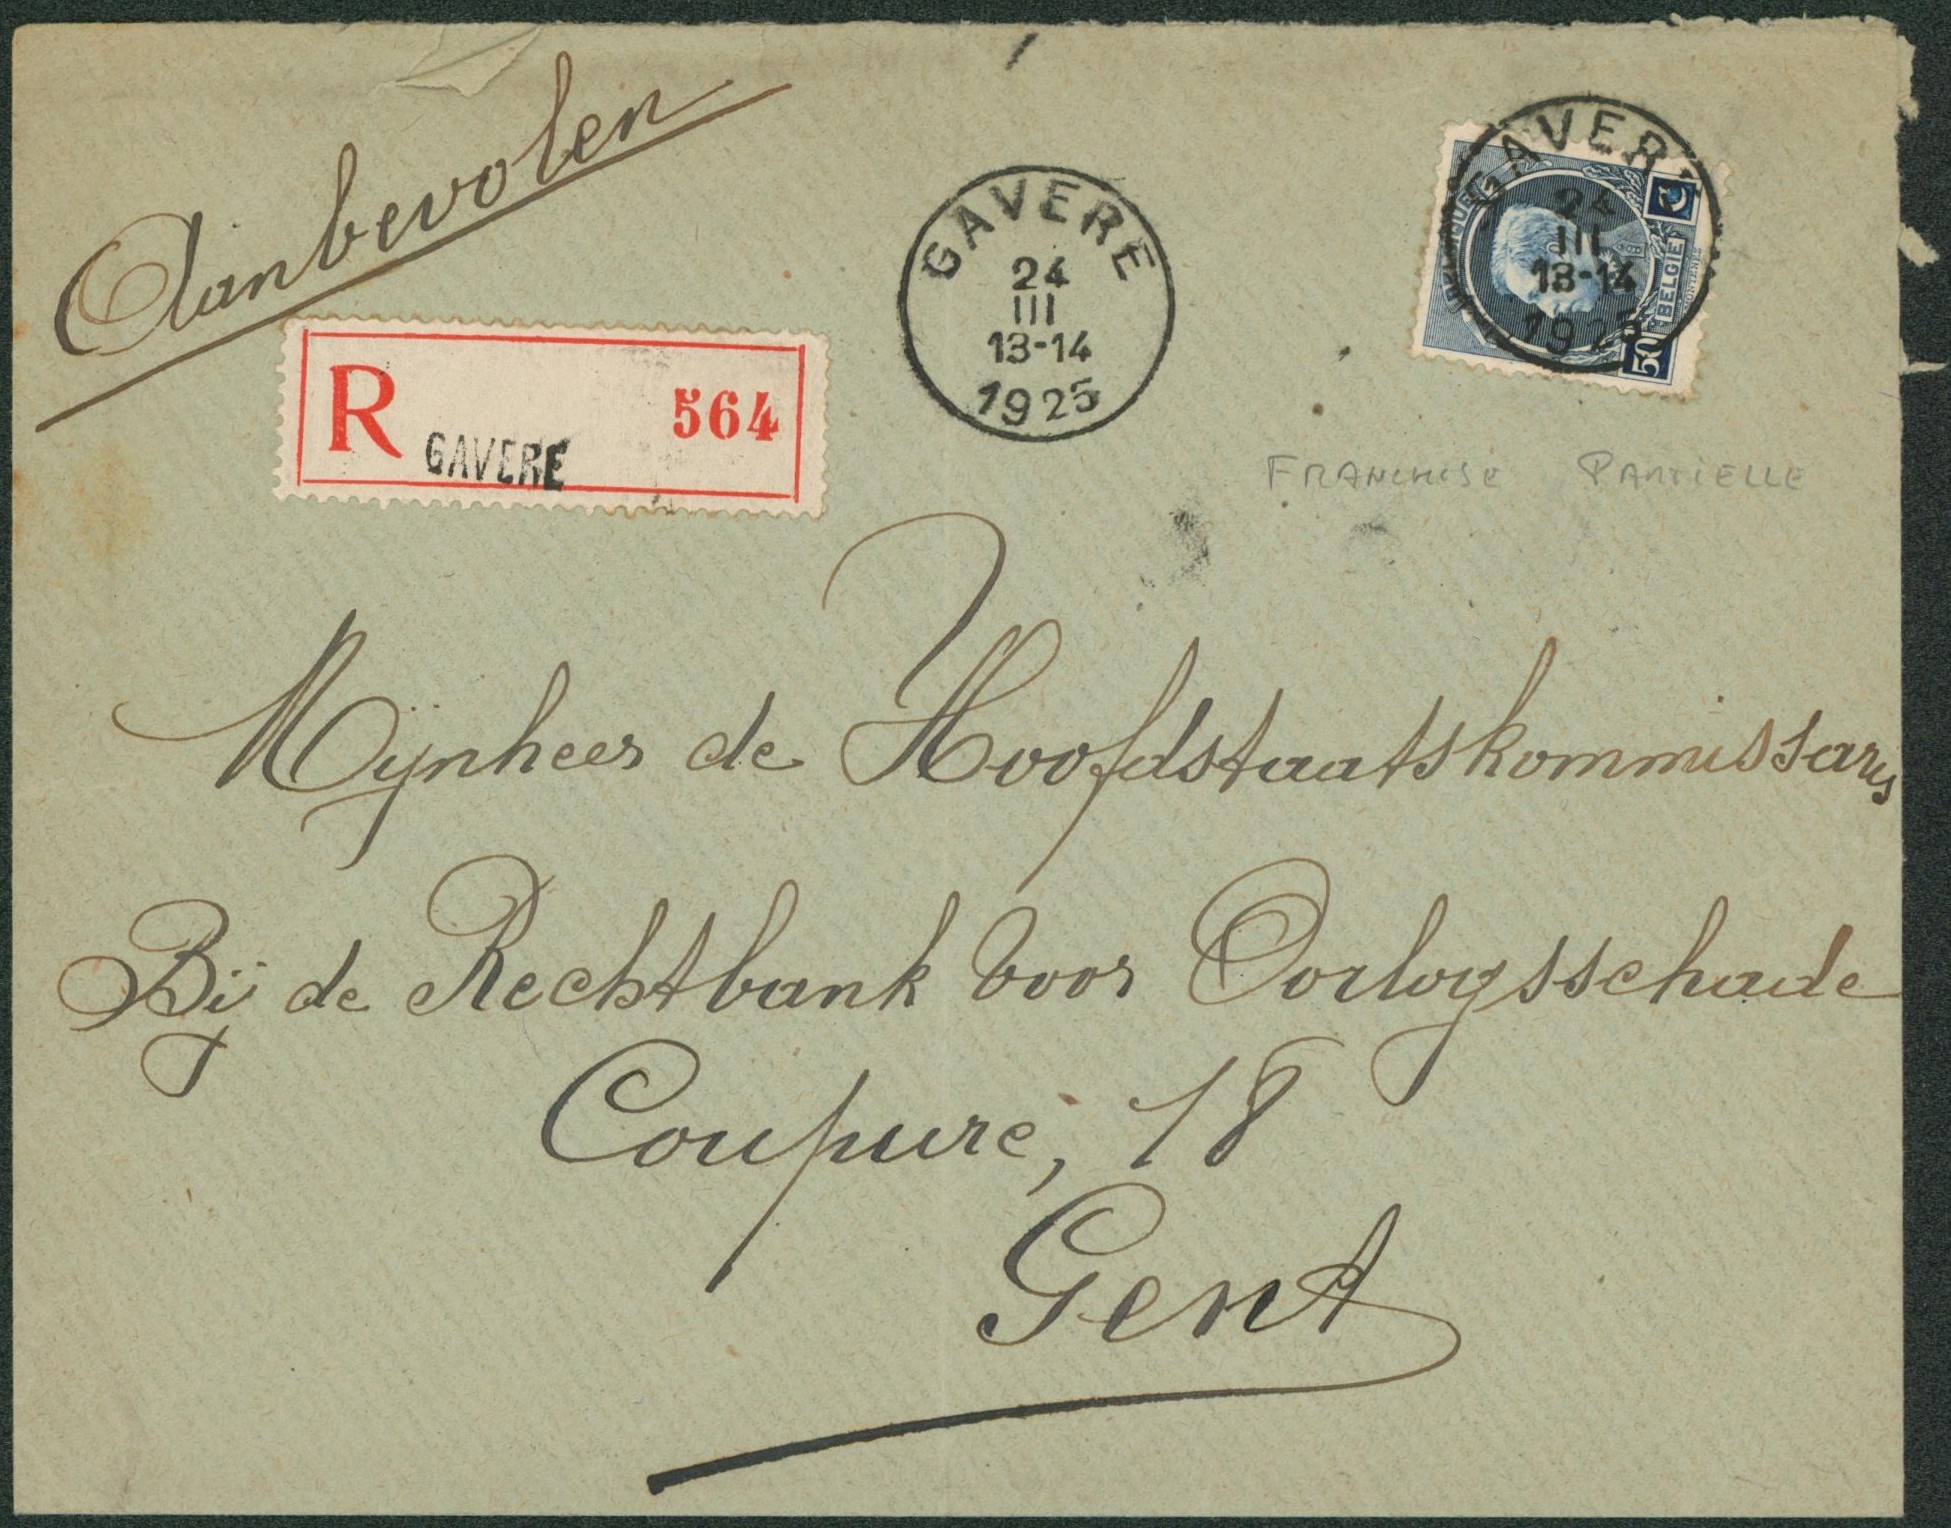 Aanbevolen
R GAVERE 564
GAVERE
24
III
13-14
1925
GAVERE
24
III
13-14
1925
BELGIQUE
BELGIË
50
C
FRANCHISE PARTIELLE
Mijnheer de Hoofdstaatskommissaris
Bij de Rechtbank voor Oorlogsschade
Coupure, 18
Gent